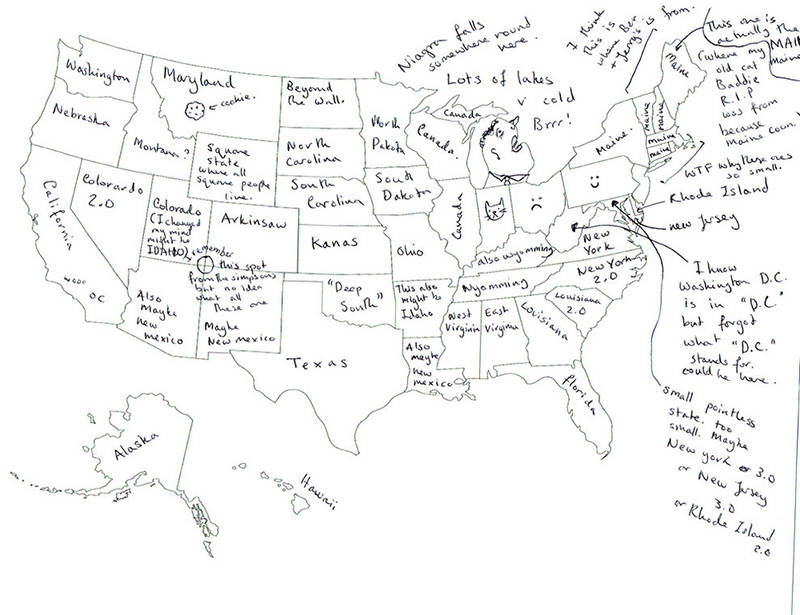 Niagra falls
somewhere round
here.
I think
this is
where Ben
+ Jerry's is
from.
This one is
actually the
MAIN
maine
(where my
old cat
Baddie
R.I.P
was from
because
Maine coon.)
Lots of lakes
v cold
Brrr!
Washington
Maryland
cookie.
Beyond
the wall.
North
Dakota
Canada
Canada.
Maine
Maine.
maine
maine
maine
maine
WTF why these ones
so small.
Nebraska
Montana?
Square
state
where all
square people
live.
North
Carolina
South
Carolina
South
Dakota
Rhode Island
new Jersey
California
Colorardo
2.0
Colorado
(I changed
my mind
might be
IDAHO)
Arkinsaw
Kanas
Ohio
Canada
also wyomming
New
York
New York
2.0
I remember
this spot
from the simpsons
but no idea
what all
these are
"Deep
South"
This also
might be
Idaho
Wyomming
OC
Also
Maybe
new
mexico
Maybe
New mexico
West
Virginin
East
Virginia
Louisiana
Louisiana
2.0
Also
maybe
new
mexico
Texas
florida
I know
Washington D.C.
is in "D.C"
but forgot
what "D.C."
stands for.
could be here.
small pointless
state. too
small. Maybe
New york 3.0
or New Jersey
3.0
or Rhode Island
2.0
Alaska
Hawaii